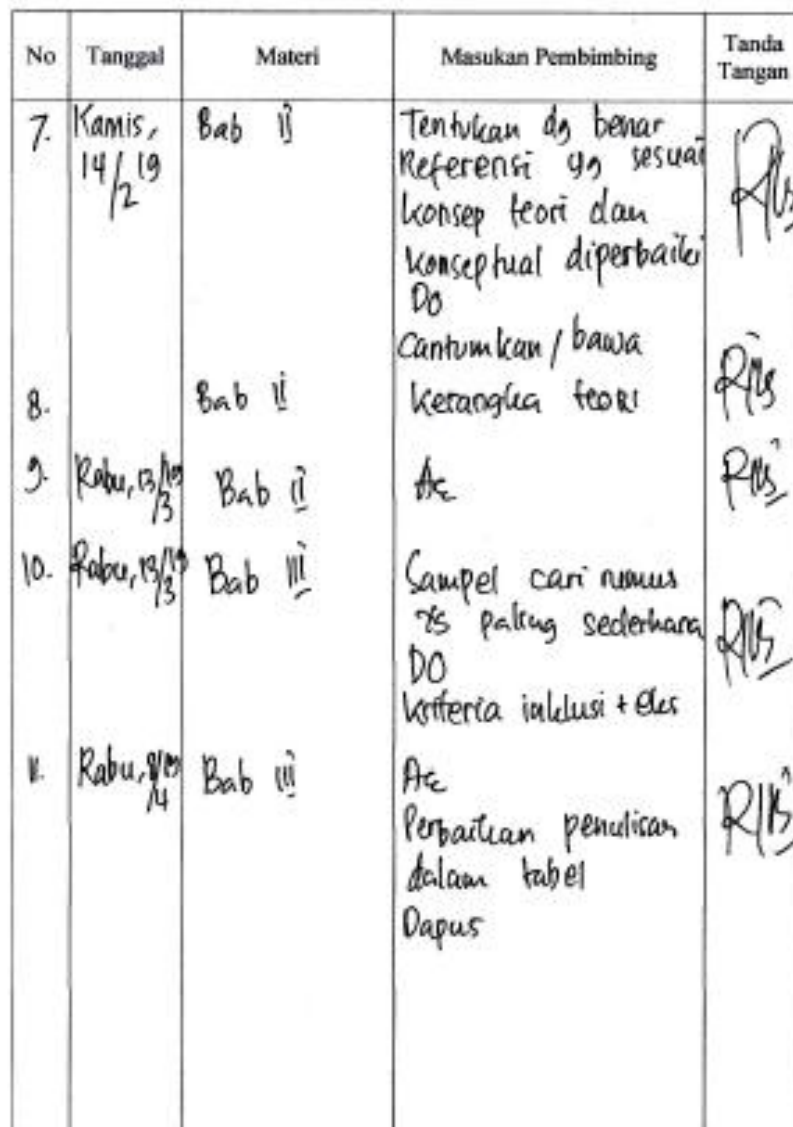 No Tanggal Materi Masukan Pembimbing Tanda Tangan
7. Kamis, 14/2 19 Bab II Tentukan dg benar
Referensi yg sesuai
konsep teori dan
konseptual diperbaiki
DO
Cantumkan / bawa
8. Bab II kerangka teori
9. Rabu, 13/3 19 Bab II Acc
10. Rabu, 13/3 19 Bab III Sampel cari rumus
yg paling sederhana
DO
kriteria inklusi + eks
11. Rabu, /4 Bab III Acc
Perbaikan penulisan
dalam tabel
Dapus